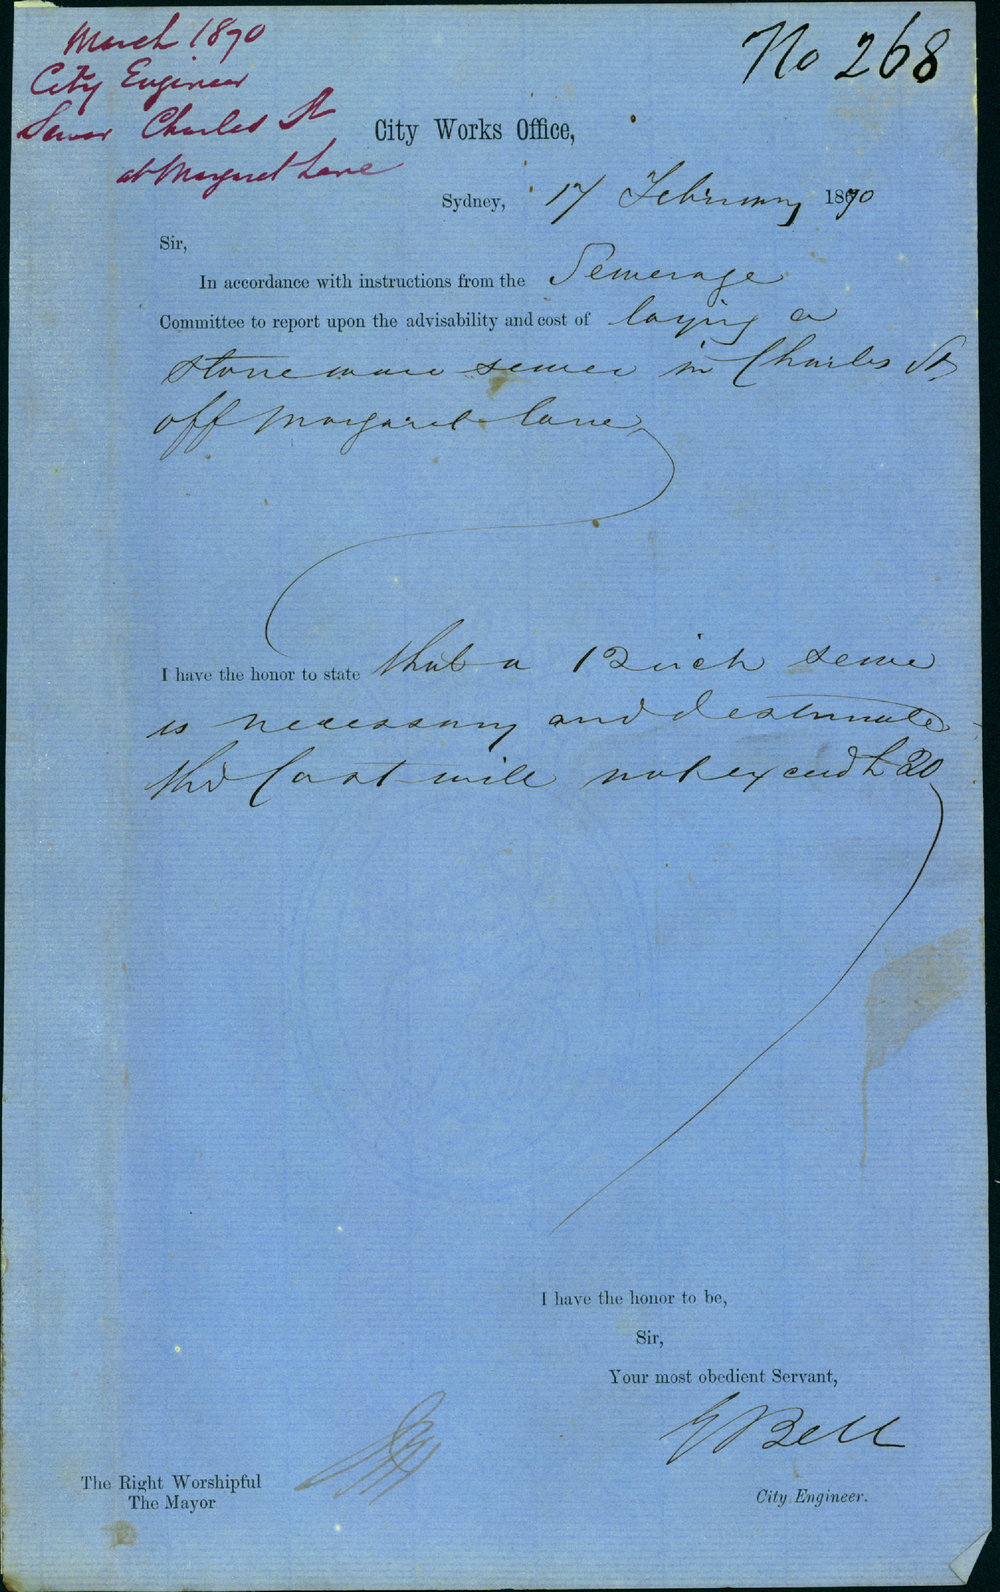 March 1870
City Engineer
Sewer Charles St
at Margaret Lane
No 268
City Works Office,
Sydney, 17 February 1870
Sir,
In accordance with instructions from the Sewerage
Committee to report upon the advisability and cost of laying a
stoneware sewer in Charles St
off Margaret lane
I have the honor to state that a 12 inch sewer
is necessary and I estimate
the Cost will not exceed £20
I have the honor to be,
Sir,
Your most obedient Servant,
E Bell
The Right Worshipful
The Mayor
City Engineer.